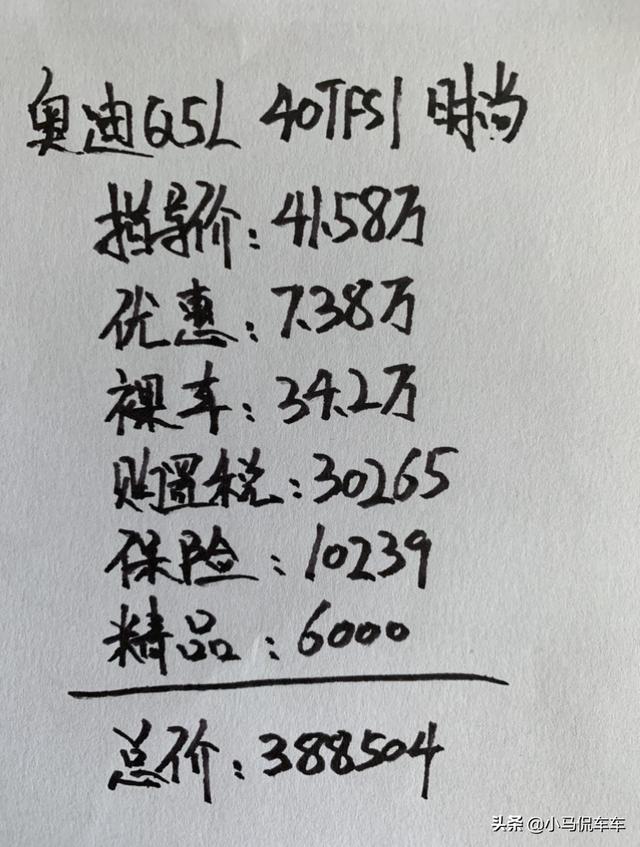 奥迪Q5L 40TFSI 时尚
指导价：41.58万
优惠：7.38万
裸车：34.2万
购置税：30265
保险：10239
精品：6000
总价：388504
头条 @小马侃车车